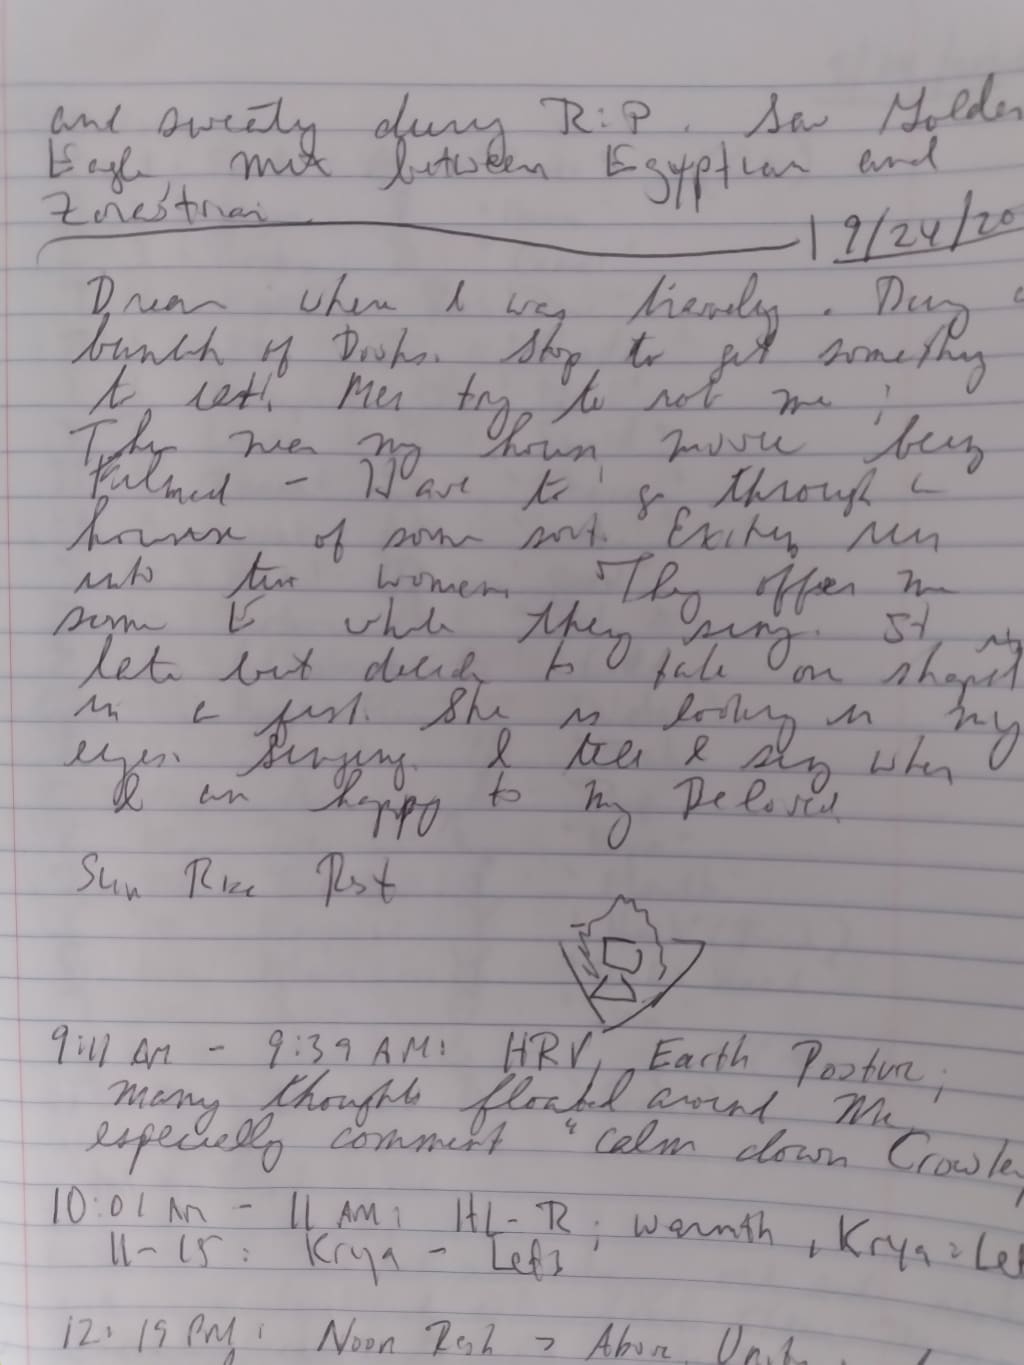 and sweaty during R.I.P. Saw Golden
Eagle, mix between Egyptian and
9/24/20
Dream where I was
bunch of Stop to get something
to eat. Men try to rob me;
my house, movie being
filmed - Have to go through a
house of some sort. Exiting run
into two women. They offer me
some E while they sing. It is
late but decide to take one shaped
in a fist. She is looking in my
eyes. Singing. I tell I sing when
I am happy to my Beloved.
Sun Rise
9:11 AM - 9:39 AM: HRV, Earth Posture;
many thoughts floated around me,
especially comment "calm down Crowley
10:01 AM - 11 AM: HL-R; warmth, Krya = Lef
11-15: Krya - Left
12:19 PM: Noon Resh > Above